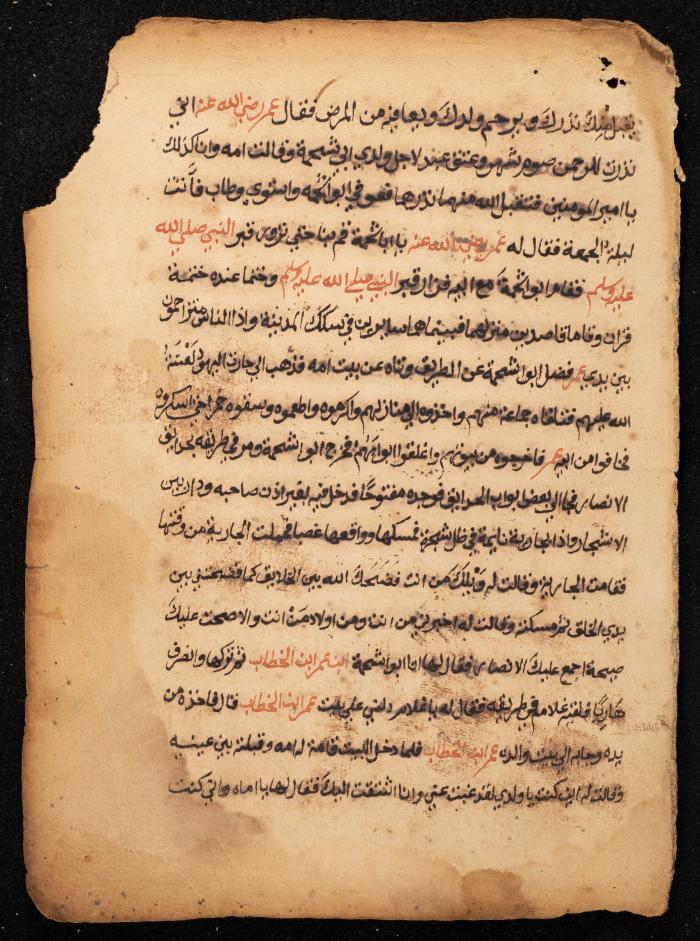 يقبل منك نذرك ويرحم ولدك ويعافيه من المرض فقال عمر رضي الله عنه اني
نذرت للرحمن صوم شهر وعتق عبد لاجل ولدي ابي شحمة وقالت امه وانا كذلك
يا امير المومنين فتقبل الله منهما نذرهما فعوفي ابو اشحمه واستوي وطاب فأنت
ليلة الجمعة فقال له عمر رضي الله عنه يا ابا شحمة قم بنا حتي نزور قبر النبي صلي الله
عليه وسلم فقام ابو اشحمة مع ابيه فزار قبر النبي صلي الله عليه وسلم وختما عنده ختمة
قران وقاما قاصدين منزلهما فبينما هما سايرين في سكك المدينة واذا الناس متزاحمون
بين يدي عمر فضل ابوا شحمة عن الطريق وتاه عن بيت امه فذهب الي حارت اليهود لعنة
الله عليهم فتلقاه جماعة منهم واخذوه الي منازلهم واكرموه واطعموه وسقوه خمرا حتي اسكروه
فخافوا من ابيه عمر فاخرجوه من بيوتهم واغلقوا ابوابهم فخرج ابوا شحمة ومر في طريقه بحدايق
الانصار فجا الي بعض ابواب الحدايق فوجده مفتوحًا فدخل فيه بغير اذن صاحبه ودار بين
الاشجار واذا بجارية نايمة في ظل شجرة فمسكها وواقعها غصبا فحملت الجارية من وقتها
فقامت الجارية وقالت له ويلك من انت فضحك الله بين الخلايق كما فضحتني بين
يدي الخلق ثم مسكته وقالت له اخبرني من انت ومن اولاد من انت والا صحت عليك
صيحة اجمع عليك الانصار فقال لها انا ابوا شحمة ابن عمر ابن الخطاب ثم تركها وانصرف
هاربًا فلقيه غلام في طريقه فقال له يا غلام دلني علي بيت عمر ابن الخطاب قال فاخذه من
يده وجابه الي بيت والده عمر ابن الخطاب فلما دخل البيت قامة له امه وقبلته بين عينيه
وقالت له اين كنت يا ولدي لقد غبت عني وانا اشتقت اليك فقال لها يا اماه واني كنت